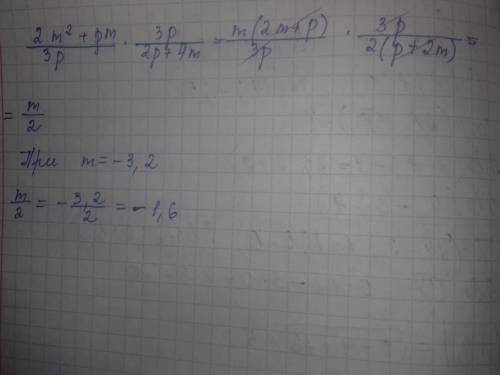 (2m² + pm)/(3p) · (3p)/(2p+4m) = (m(2m+p))/(3p) · (3p)/(2(p+2m)) =
= m/2
При m = -3,2
m/2 = - 3,2/2 = - 1,6